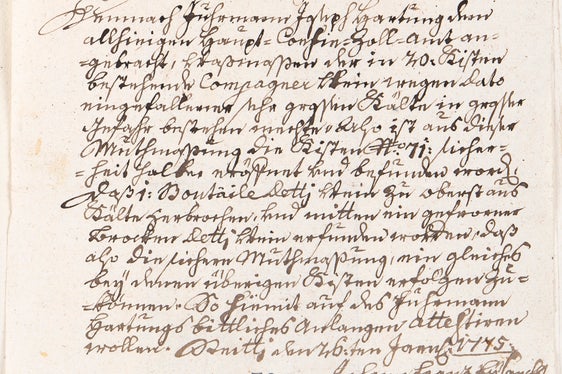 Demnach Fuhrmann Joseph Hartung dem
allhiesigen Haupt-Consin-Zoll-Amt an-
-gebracht, wasmassen der in 20. Kisten
bestehende Compagner Wein wegen dato
eingefallener sehr grosser Kälte in grosser
Gefahr bestehen mechte. Also ist aus dieser
Muthmassung die Kisten No 71: sicher-
-heit halber eröffnet und befunden word:
daß 1: Boutäile detti Wein zu oberst aus
Kälte zerbrochen, und mitten ein gefrorner
Brocken detti Wein erfunden worden, daß
also die sichere Muthmassung, ein gleiches
bey denen übrigen Kisten erfolgen zu-
-können. So hiemit auf des Fuhrmann
Hartungs bittliches Anlangen attestiren
wollen. Reitti den 26:ten Jann: 1775: